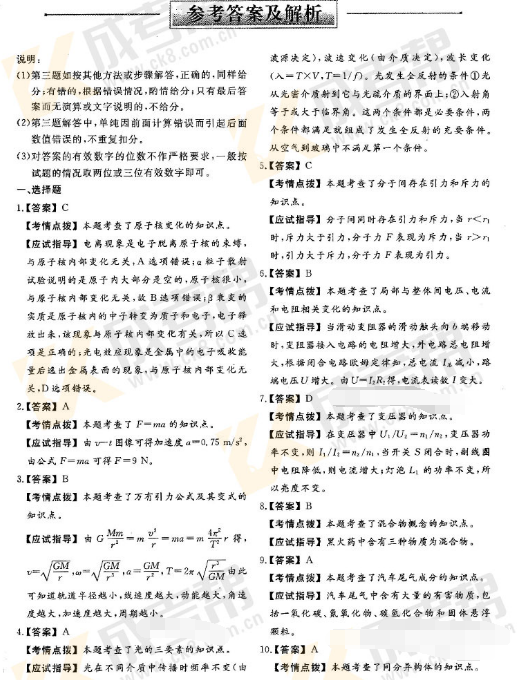 参考答案及解析
说明：
(1)第三题如按其他方法或步骤解答,正确的,同样给
分;有错的,根据错误情况,酌情给分;只有最后答
案而无演算或文字说明的,不给分。
(2)第三题解答中,单纯因前面计算错误而引起后面
数值错误的,不重复扣分。
(3)对答案的有效数字的位数不作严格要求,一般按
试题的情况取两位或三位有效数字即可。
一、选择题
1.【答案】C
【考情点拨】本题考查了原子核变化的知识点。
【应试指导】电离现象是电子脱离原子核的束缚,
与原子核内部变化无关,A选项错误;α粒子散射
试验说明的是原子内大部分是空的,原子核很小,
与原子核内部变化无关,故B选项错误;β衰变的
实质是原子核内的中子转变为质子和电子,电子释
放出来,该现象与原子核内部变化有关,所以C选
项是正确的;光电效应现象是金属中的电子吸收能
量后逃出金属表面的现象,与原子核内部变化无
关,D选项错误。
2.【答案】A
【考情点拨】本题考查了 F=ma 的知识点。
【应试指导】由 v—t 图像可得加速度 a=0.75 m/s²,
由公式 F=ma 可得 F=9 N。
3.【答案】B
【考情点拨】本题考查了万有引力公式及其变式的
知识点。
【应试指导】由 G Mm/r² = m v²/r = ma = m 4π²/T² r 得,
v=√(GM/r), ω=√(GM/r³), a=GM/r², T=2π√(r³/GM) 由此
可知道轨道半径越小,线速度越大,动能越大,角速
度越大,加速度越大,周期越小。
4.【答案】A
【考情点拨】本题考查了光的三要素的知识点。
【应试指导】光在不同介质中传播时频率不变(由
波源决定),波速变化(由介质决定),波长变化
(λ=T×V,T=1/f)。光发生全反射的条件①光
从光密介质射到它与光疏介质的界面上;②入射角
等于或大于临界角。这两个条件都是必要条件,两
个条件都满足就组成了发生全反射的充要条件。
从空气到玻璃中不满足第一个条件。
5.【答案】C
【考情点拨】本题考查了分子间存在引力和斥力的
知识点。
【应试指导】分子间同时存在引力和斥力,当 r<r₁
时,斥力大于引力,分子力 F 表现为斥力,当 r>r₁
时,引力大于斥力,分子力 F 表现为引力。
6.【答案】B
【考情点拨】本题考查了局部与整体间电压、电流
和电阻相关变化的知识点。
【应试指导】当滑动变阻器的滑动触头向 b 端移动
时,变阻器接入电路的电阻增大,外电路总电阻增
大,根据闭合电路欧姆定律知,总电流 减小,路
端电压 U 增大。由 得,电流表读数 I 变大。
7.【答案】D
【考情点拨】本题考查了变压器的知识点。
【应试指导】在变压器中 U₁/U₂=n₁/n₂,变压器功
率不变,则 I₁/I₂=n₂/n₁,当开关 S 闭合时,副线圈
中电阻降低,则电流增大;灯泡 L₁ 的功率不变,所
以亮度不变。
8.【答案】B
【考情点拨】本题考查了混合物概念的知识点。
【应试指导】黑火药中含有三种物质为混合物。
9.【答案】A
【考情点拨】本题考查了汽车尾气成分的知识点。
【应试指导】汽车尾气中含有大量的有害物质,包
括一氧化碳、氮氧化物、碳氢化合物和固体悬浮
颗粒。
10.【答案】A
【考情点拨】本题考查了同分异构体的知识点。